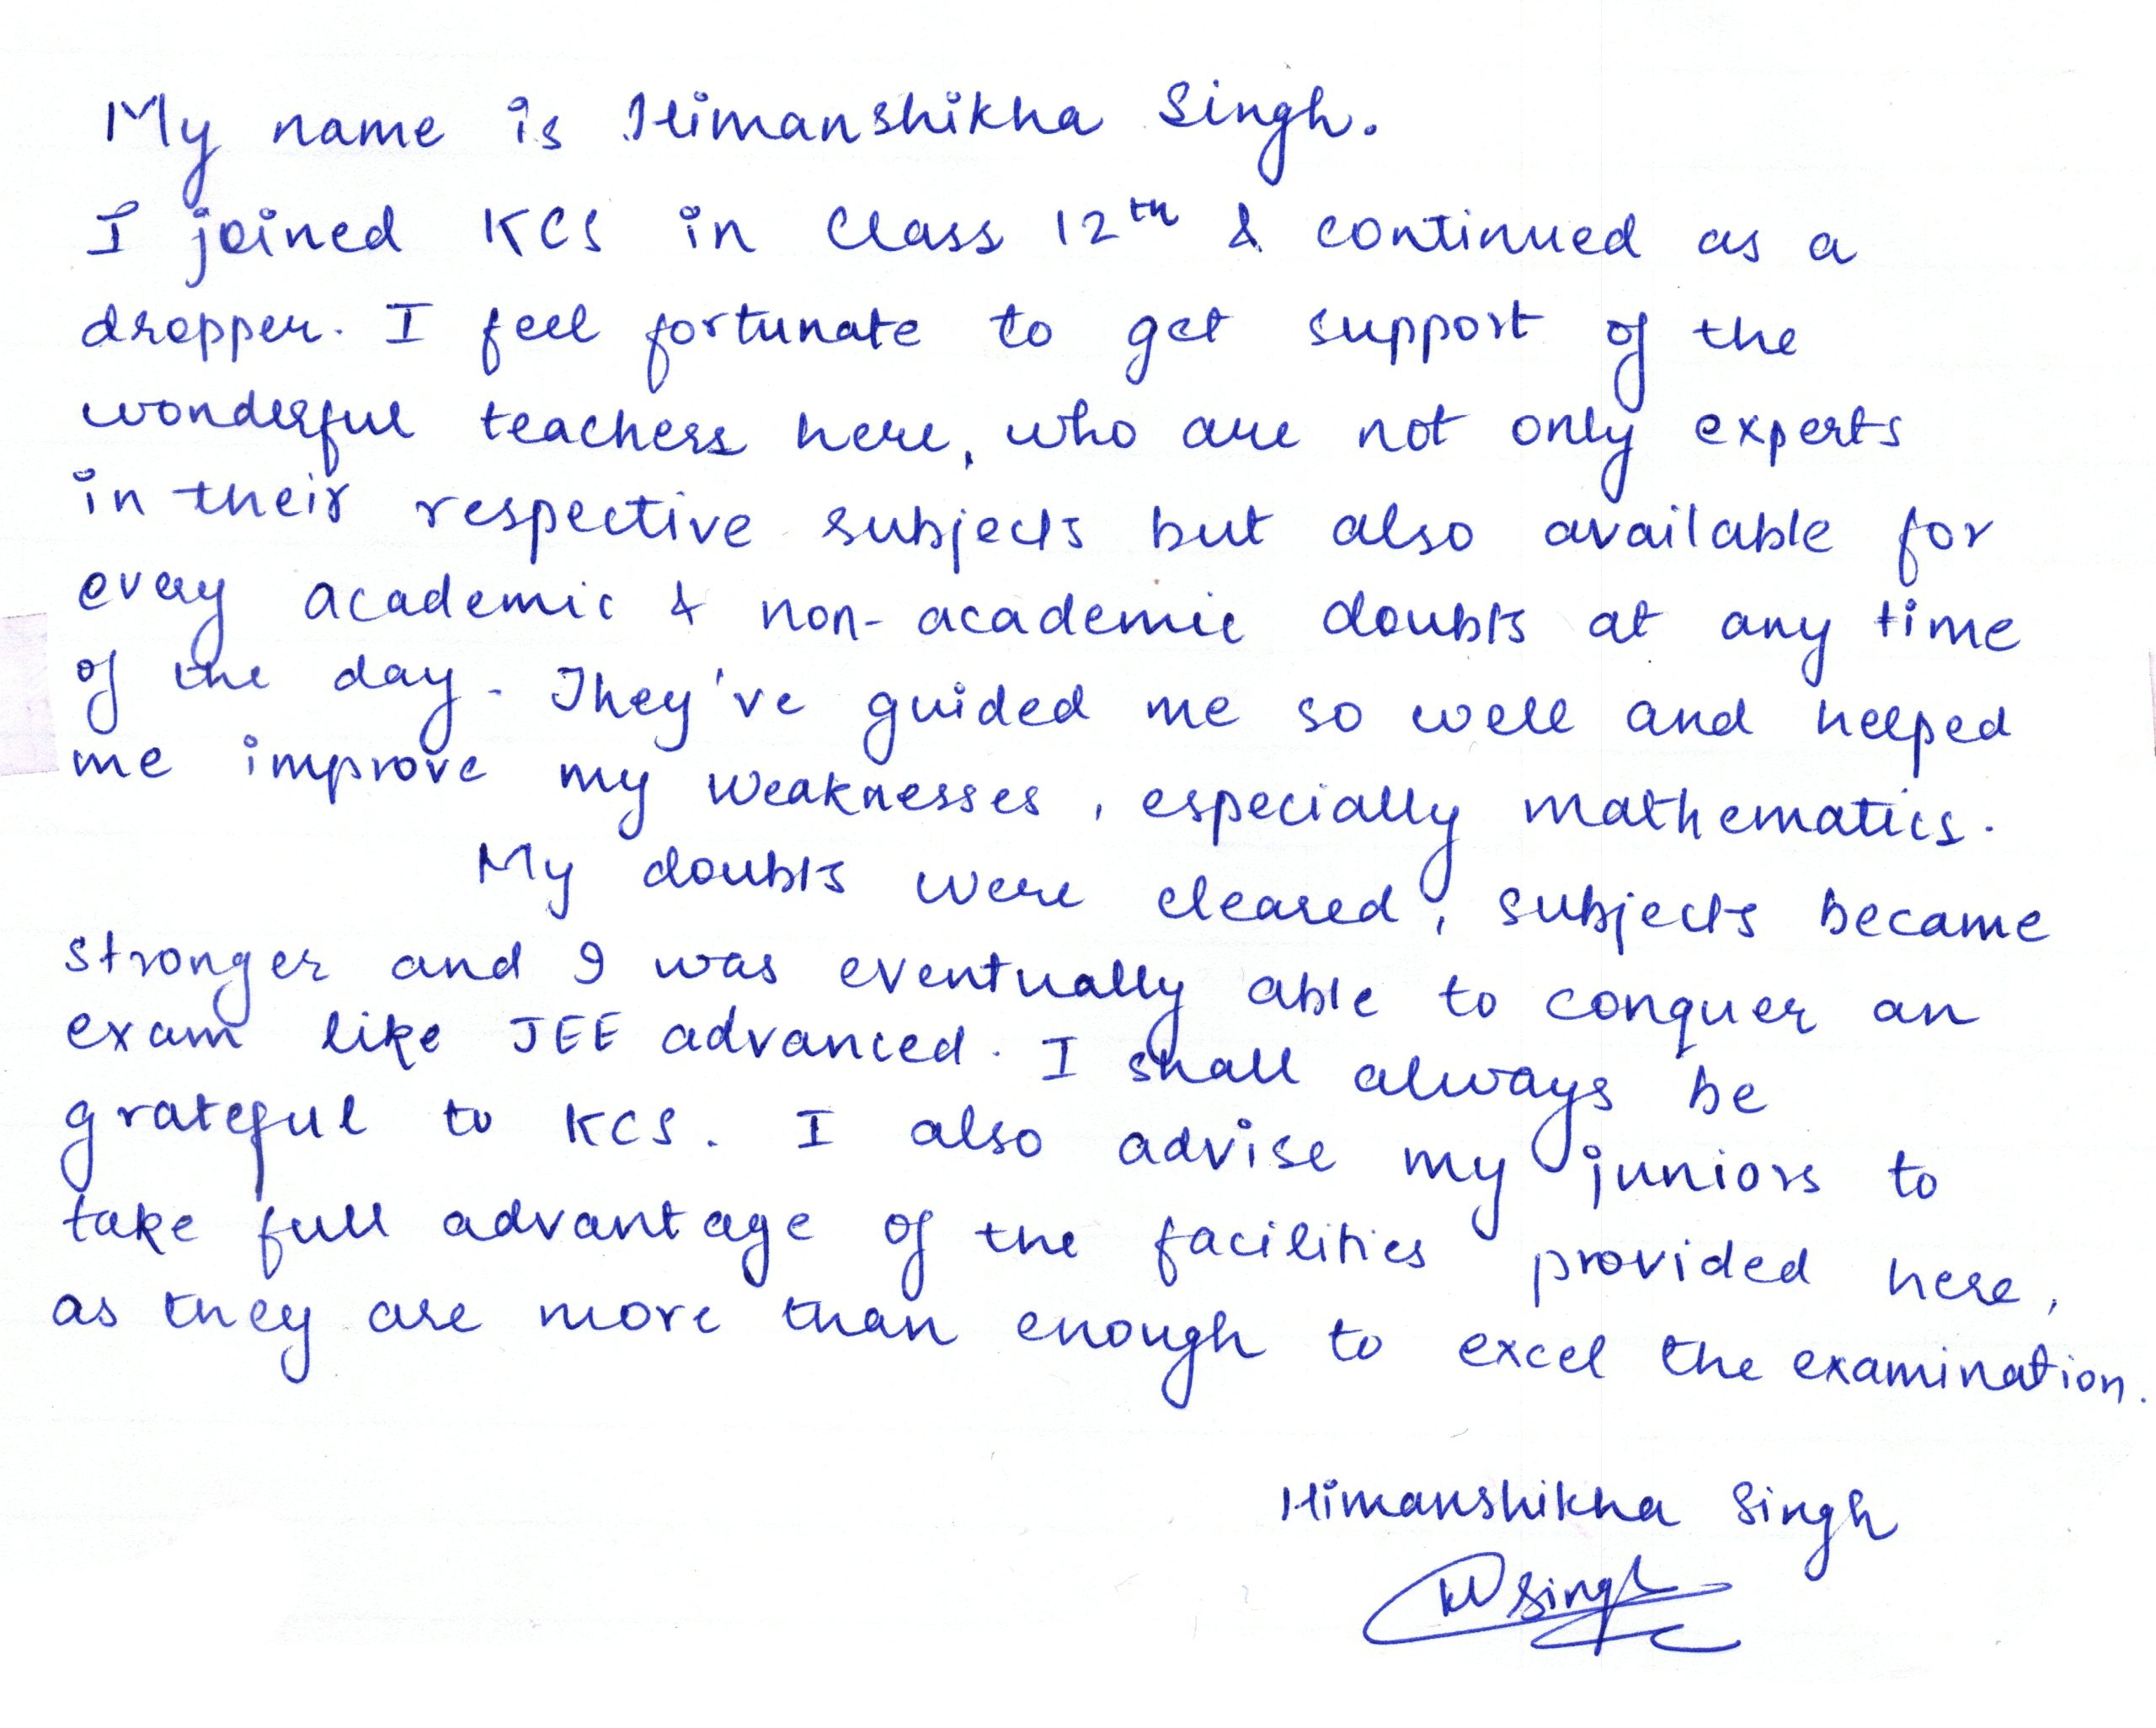 My name is Himanshikha Singh.
I joined KCS in Class 12th & continued as a
dropper. I feel fortunate to get support of the
wonderful teachers here, who are not only experts
in their respective subjects but also available for
every academic & non-academic doubts at any time
of the day. They've guided me so well and helped
me improve my weaknesses, especially mathematics.
My doubts were cleared, subjects became
stronger and I was eventually able to conquer an
exam like JEE advanced. I shall always be
grateful to KCS. I also advise my juniors to
take full advantage of the facilities provided here,
as they are more than enough to excel the examination.
Himanshikha Singh
Singh